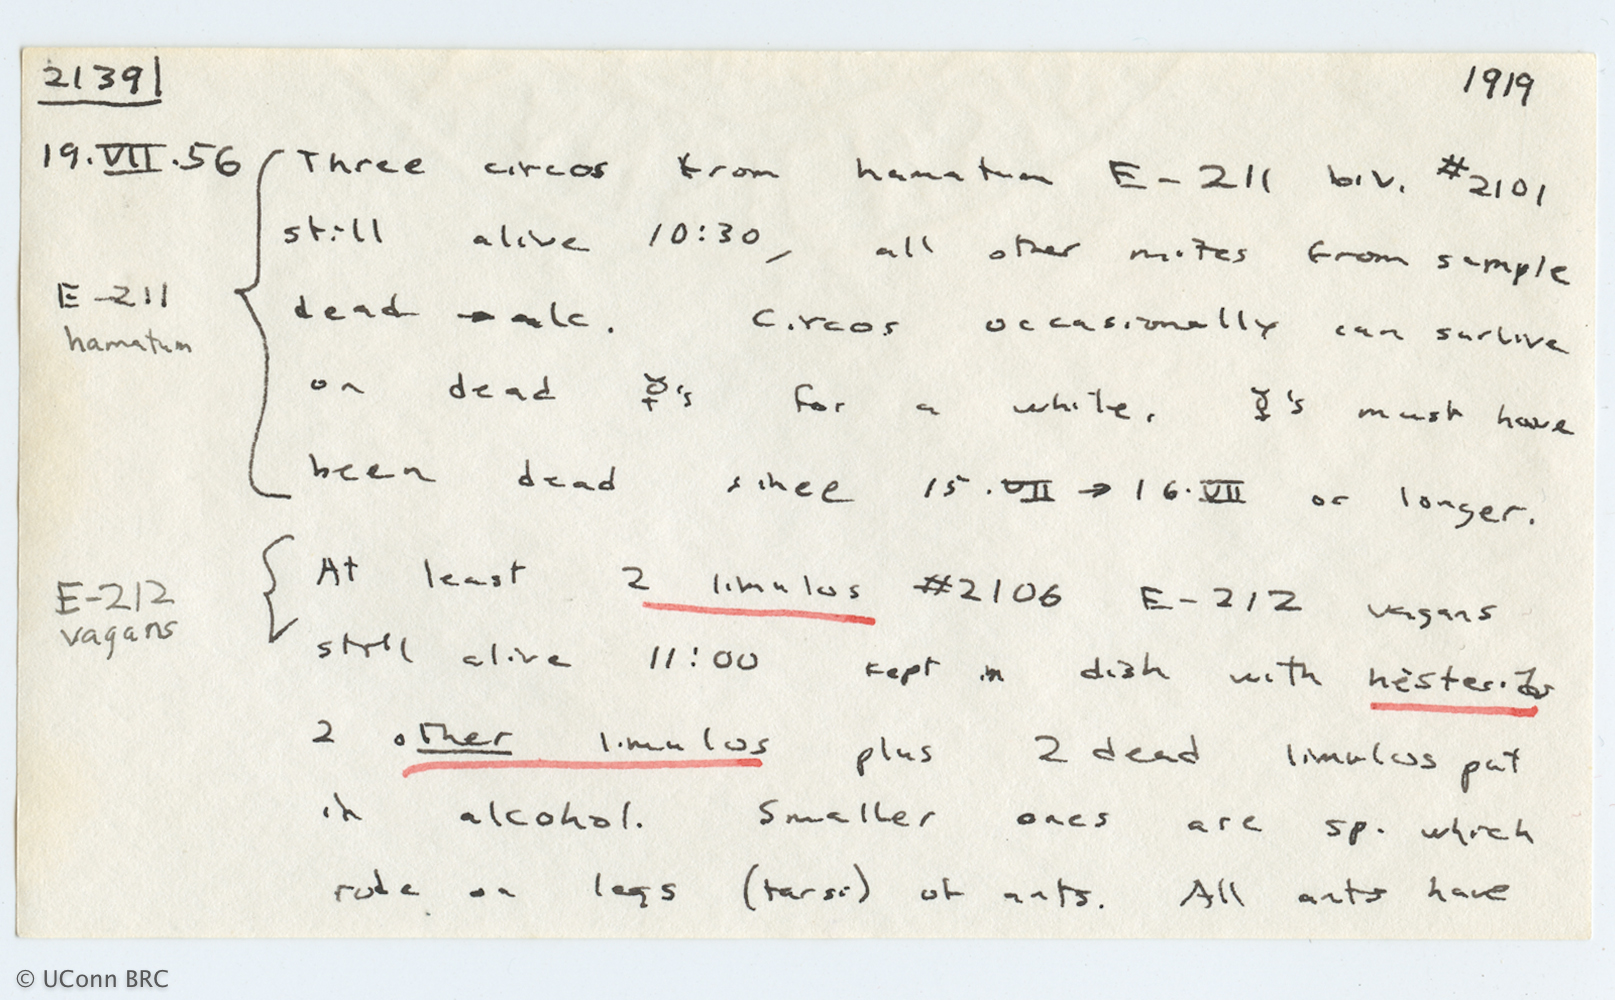 2139
1919
19.VII.56 Three circos from hamatum E-211 biv. #2101
still alive 10:30, all other mites from sample
E-211
dead → alc. Circos occasionally can survive
hamatum
on dead ☿'s for a while. ☿'s must have
been dead since 15.VII → 16.VII or longer.
At least 2 limulus #2106 E-212 vagans
E-212
vagans
still alive 11:00 kept in dish with
2 other limulus plus 2 dead limulus put
in alcohol. Smaller ones are sp. which
rode on legs (tarsi) of ants. All ants have
© UConn BRC